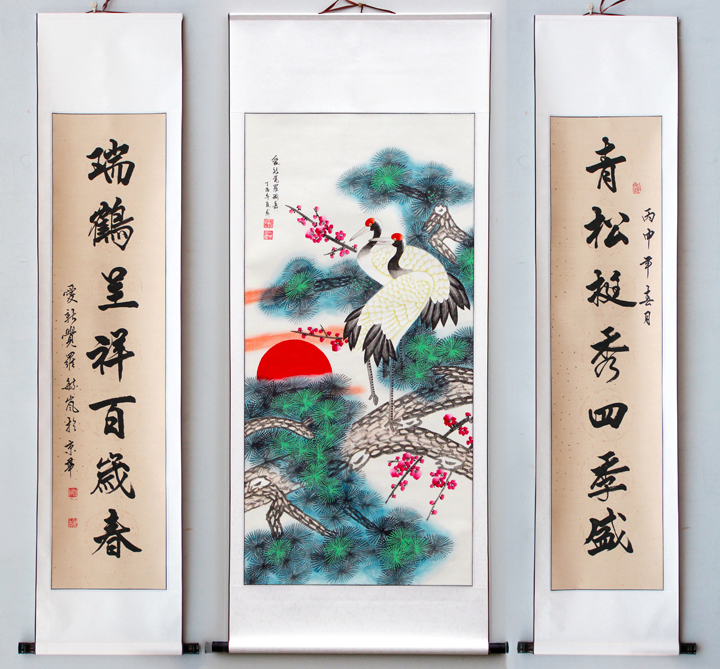 青松挺秀四季盛
丙申年春月
愛新覺羅
瑞鶴呈祥百歲春
愛新覺羅嵐於京華